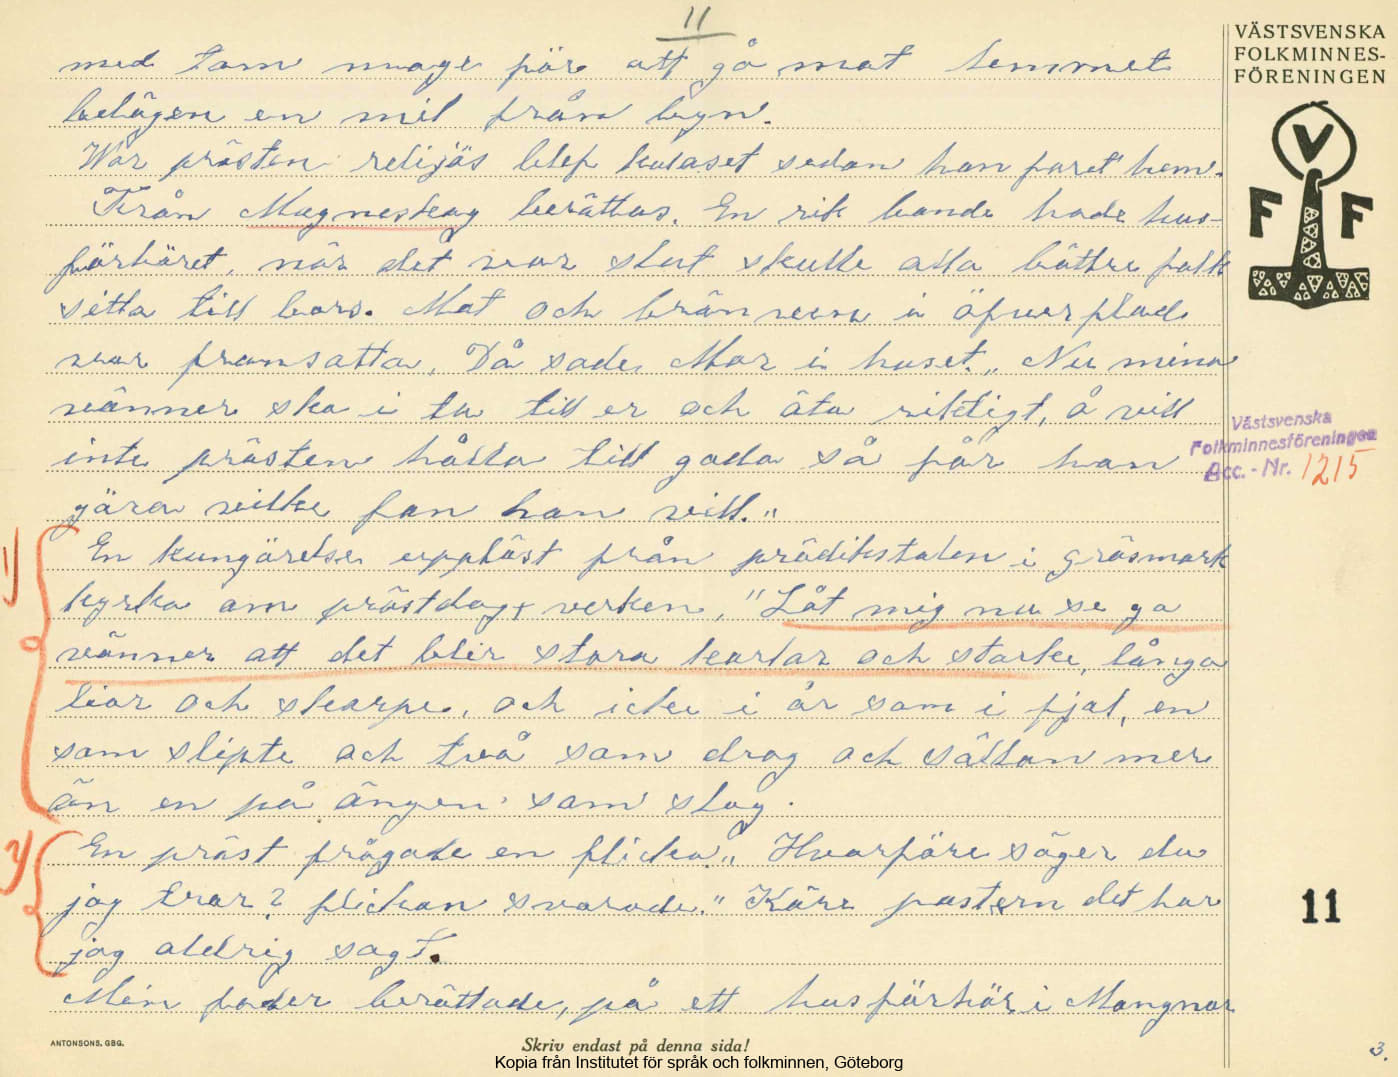 11
VÄSTSVENSKA
FOLKMINNES-
FÖRENINGEN
V
F F
med tom mage för att gå mot hemmet
belägen en mil från byn.
War prästen religiös blef kalaset sedan han faret hem.
Från Magneskog berättas. En rik bonde hade hus-
förhöret, när det var slut skulle alla bättre folk
sitta till bors. Mat och bränvin i öfverflöd
var framsatta. Då sade Mor i huset. „Nu mina
vänner ska i ta till er och äta riktigt, å vill
inte prästen hålla till goda så får han
göra vilke fan han vill."
1) En kungörelse uppläst från prädikstolen i Gräsmark
kyrka om prästdagsverken, "Låt mig nu se ga
vänner att det blir stora karlar och starke, långa
liar och skarpe, och icke i år som i fjol, en
som slipte och två som drog och sällan mer
än en på ängen som slog.
2) En präst frågade en flicka „Hvarföre säger du
jag tror? flickan svarade." Käre pastorn det har
jag aldrig sagt.
Min fader berättade, på ett husförhör i Mangnor
Västsvenska
Folkminnesföreningen
Acc. - Nr. 1215
11
ANTONSONS, GBG.
Skriv endast på denna sida!
3.
Kopia från Institutet för språk och folkminnen, Göteborg